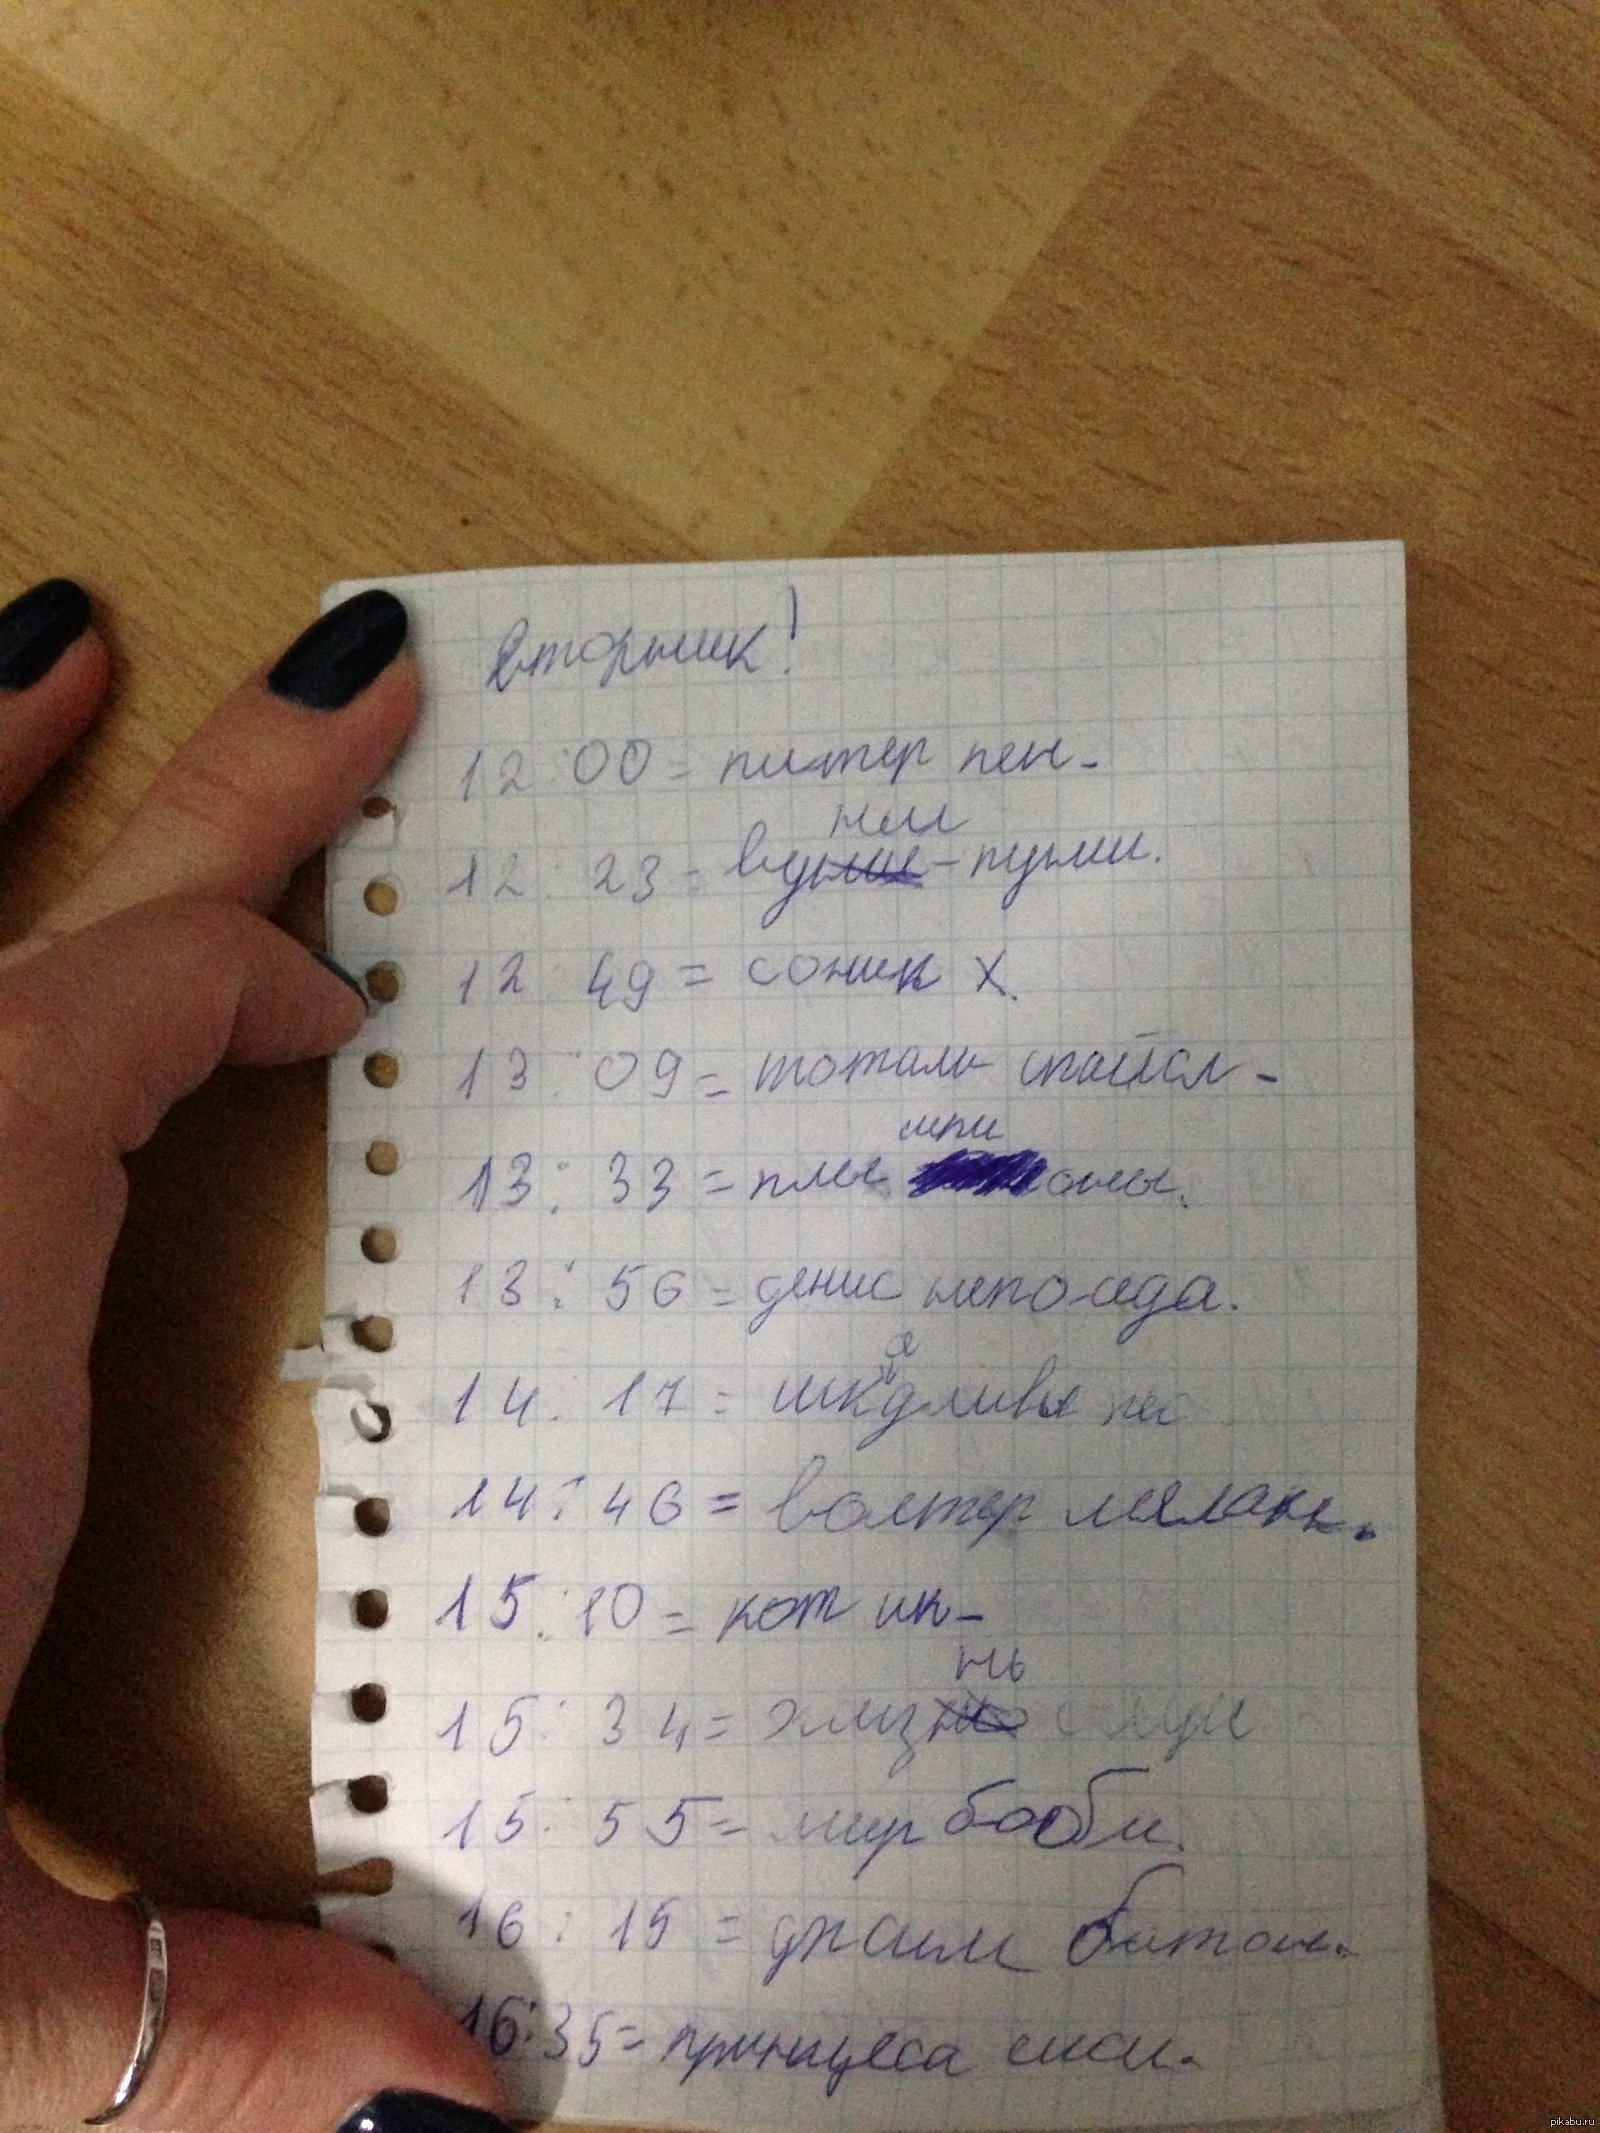 вторник!
12:00 = питер пен.
12:23 = вунши-пунши.
12:49 = соник х.
13:09 = тоталь спайсл
13:33 = мпи оны.
13:56 = денис непоседа.
14:17 = шкодливы пес
14:46 = волтер мелан.
15:10 = кот ик
15:34 = жизнь с луи
15:55 = мир бобби.
16:15 = джим батон.
16:35 = принцеса сиси.
pikabu.ru